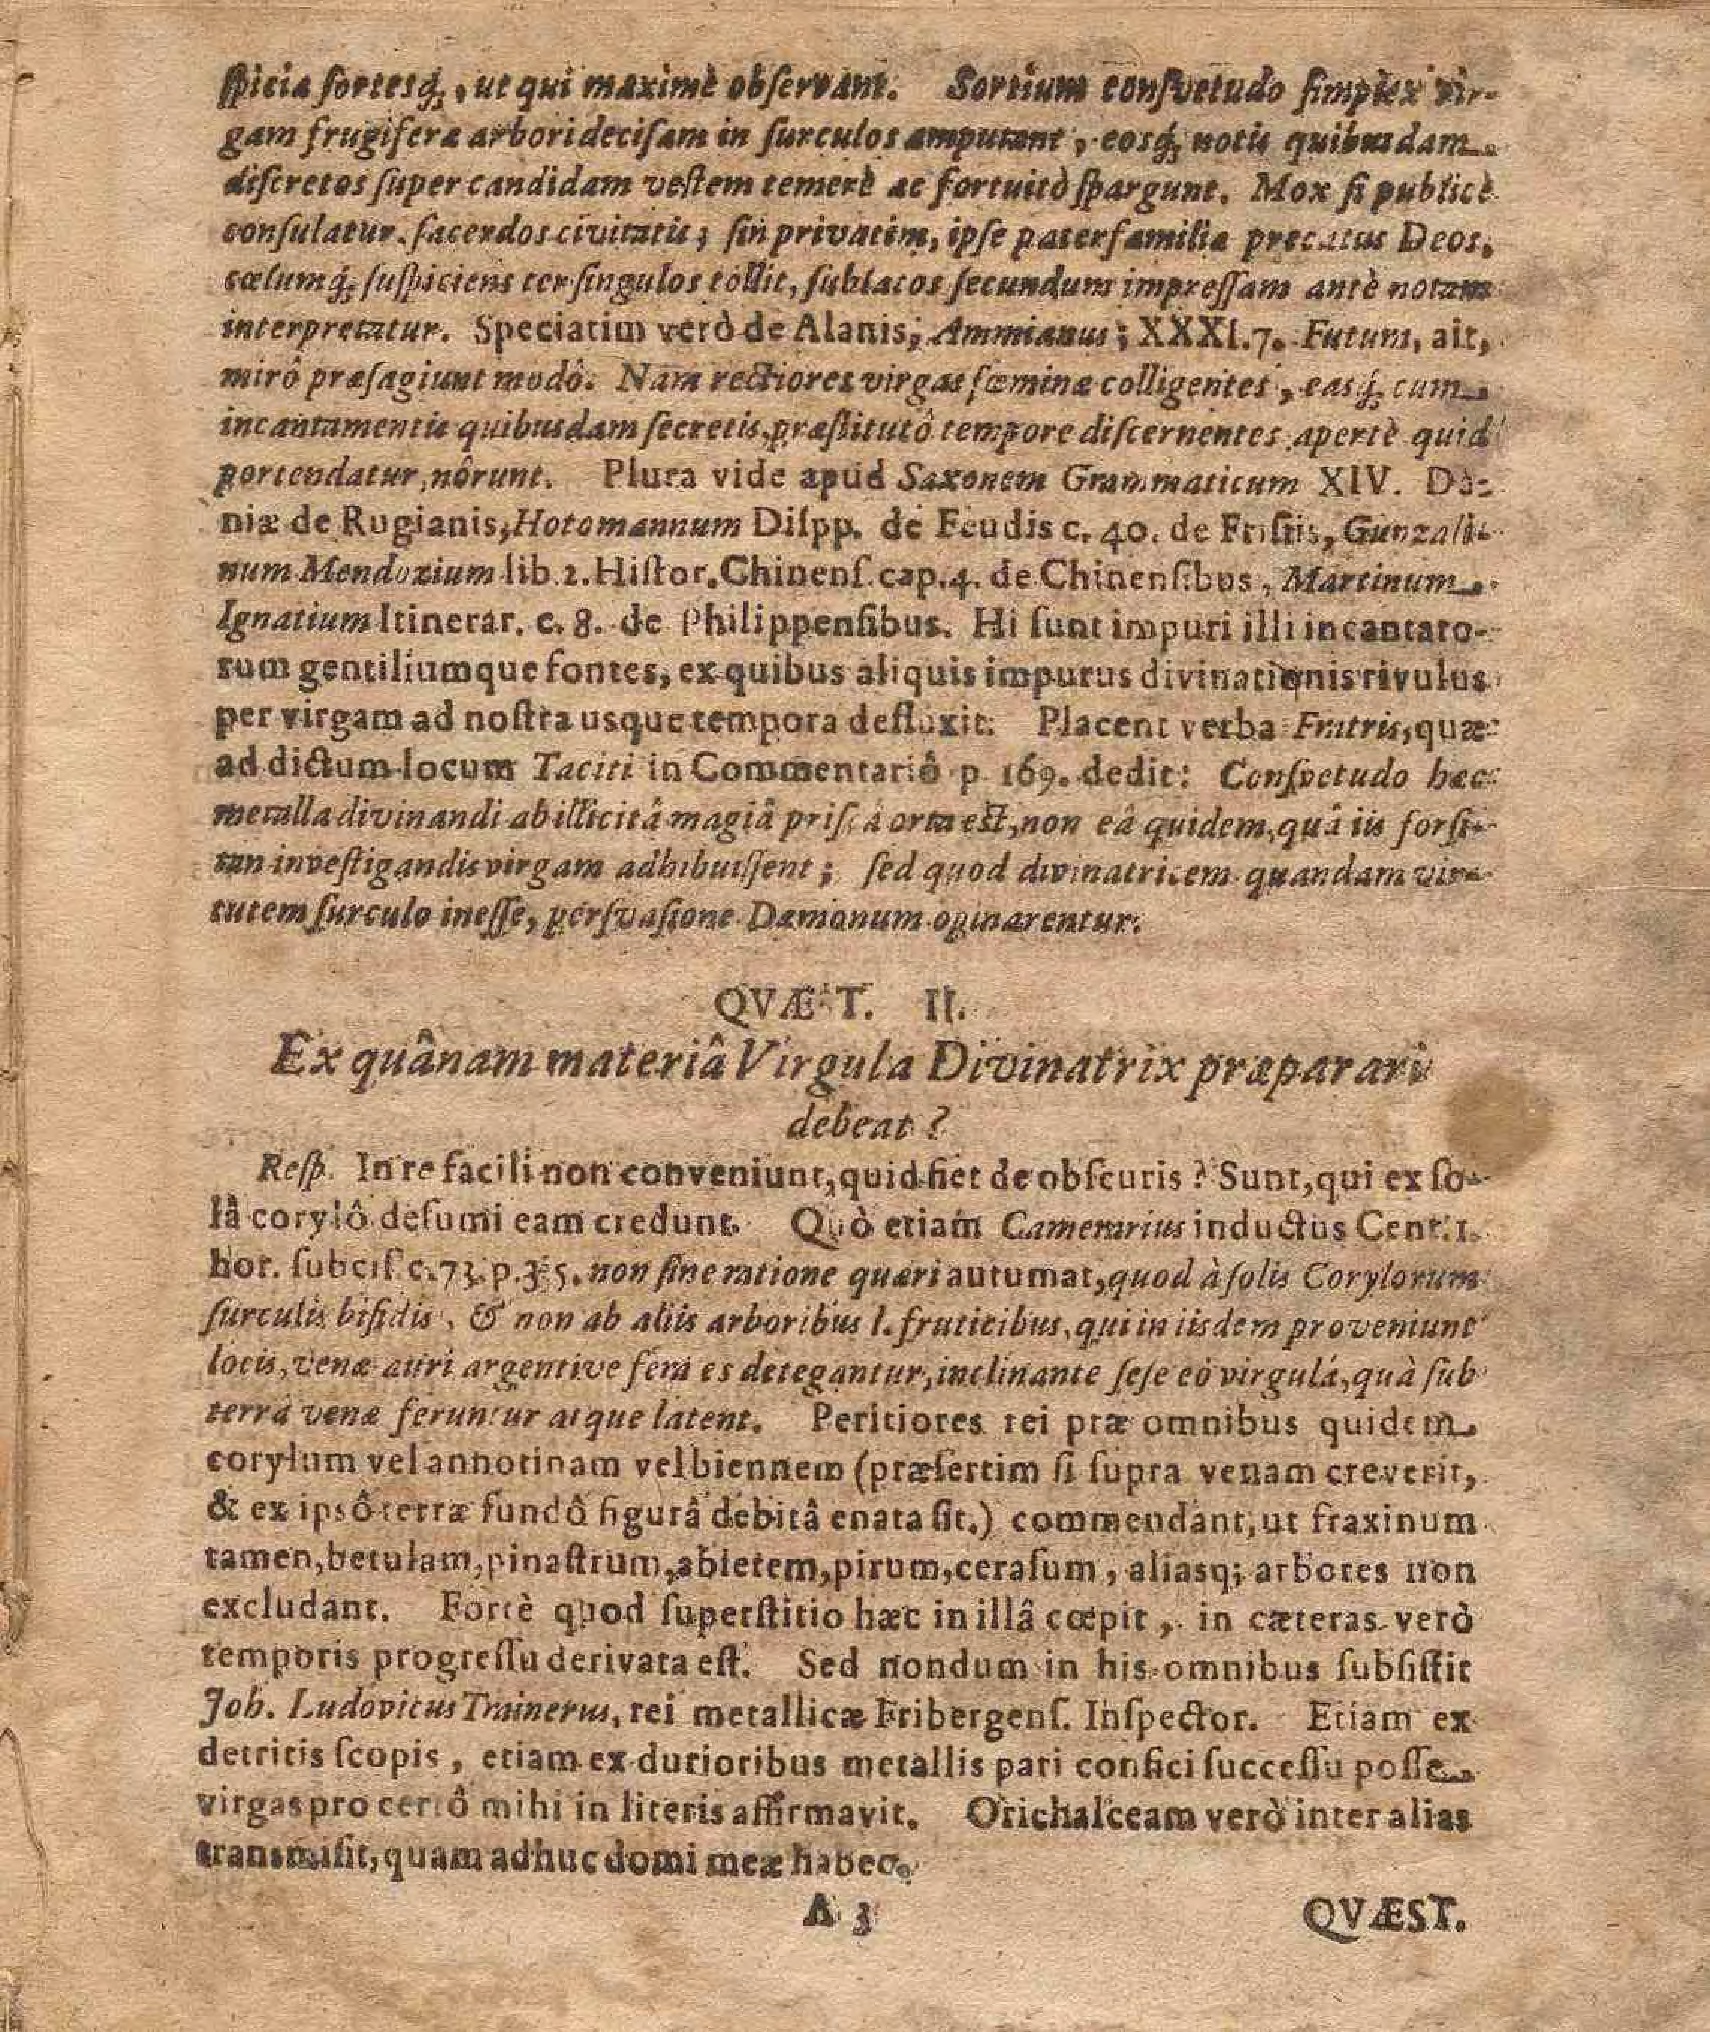 ſpicia ſortesq́;, ut qui maximè obſervant. Sortium conſvetudo ſimplex vir-
gam frugiferæ arbori deciſam in ſurculos amputant, eosq́; notis quibusdam
diſcretos ſuper candidam veſtem temerè ac fortuitò ſpargunt. Mox ſi publicè
conſulatur, ſacerdos civitatis; ſin privatim, ipſe paterfamiliæ precatus Deos,
cælumq́; ſuſpiciens ter ſingulos tollit, ſublatos ſecundum impreſſam antè notam
interpretatur. Speciatim verò de Alanis, Ammianus; XXXI.7. Futura, ait,
mirô præſagiunt modô. Nam rectiores virgas fœminæ colligentes, easq́; cum
incantamentis quibusdam ſecretis præſtitutô tempore diſcernentes apertè quid
portendatur, nôrunt. Plura vide apud Saxonem Grammaticum XIV. Da-
niæ de Rugianis, Hotomannum Diſpp. de Feudis c. 40. de Friſiis, Gunzali-
num Mendozium lib. 2. Hiſtor. Chinenſ. cap. 4. de Chinenſibus, Martinum
Ignatium Itinerar. c. 8. de Philippenſibus. Hi ſunt impuri illi incantato-
rum gentiliumque fontes, ex quibus aliquis impurus divinationis rivulus
per virgam ad noſtra usque tempora defluxit. Placent verba Fratris, quæ
ad dictum locum Taciti in Commentariô p 169. dedit: Conſvetudo hæc
metalla divinandi ab illicitâ magiâ priſcâ orta eſt, non eâ quidem, quâ iis forſi-
tan inveſtigandis virgam adhibuiſſent; ſed quod divinatricem quandam vir-
tutem ſurculo ineſſe, perſvaſione Dæmonum opinarentur.
QVÆST. II.
Ex quânam materiâ Virgula Divinatrix præparari
debeat?
Reſp. In re facili non conveniunt, quid fiet de obſcuris? Sunt, qui ex ſo-
lâ corylô deſumi eam credunt. Quò etiam Camerarius inductus Cent. 1.
hor. ſubciſ. c. 73. p. non ſine ratione quæri autumat, quod à ſolis Corylorum
ſurculis bifidis, & non ab aliis arboribus l. fruticibus, qui in iisdem proveniunt
locis, venæ auri argentive feraces detegantur, inclinante ſeſe eò virgulâ, quà ſub
terrâ venæ feruntur atque latent. Peritiores rei præ omnibus quidem
corylum vel annotinam vel biennem (præſertim ſi ſupra venam creverit,
& ex ipsô terræ fundô figurâ debitâ enata ſit.) commendant, ut fraxinum
tamen, betulam, pinaſtrum, abietem, pirum, ceraſum, aliasq; arbores non
excludant. Fortè quod ſuperſtitio hæc in illâ cœpit, in cæteras verò
temporis progreſſu derivata eſt. Sed nondum in his omnibus ſubſiſtit
Joh. Ludovicus Trainerus, rei metallicæ Fribergenſ. Inſpector. Etiam ex
detritis ſcopis, etiam ex durioribus metallis pari confici ſucceſſu poſſe
virgas pro certô mihi in literis affirmavit. Orichalceam verò inter alias
transmiſit, quam adhuc domi meæ habeo.
A 3 QVÆST.